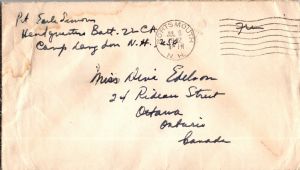 Pvt
Headquarters Batt. 22 CA
Camp Langdon N.H. USA
PORTSMOUTH
N.H.
Free
Miss Edelson
24 Rideau Street
Ottawa
Ontario
Canada